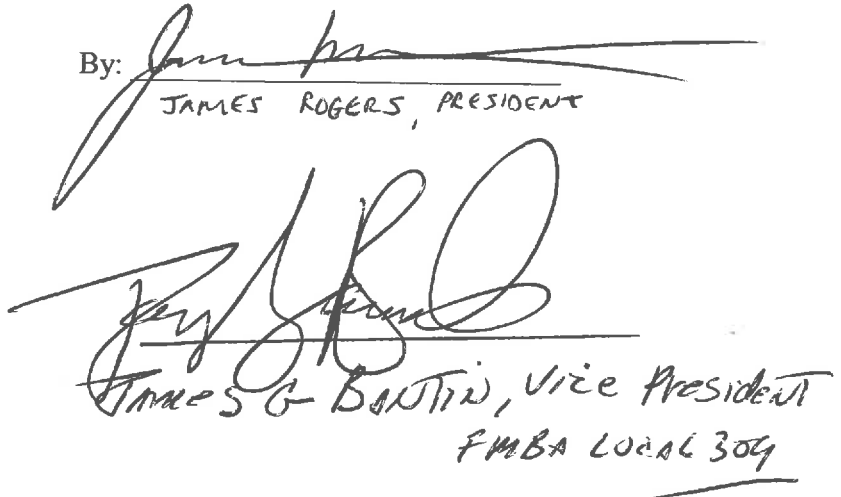 By:
JAMES ROGERS, PRESIDENT
JAMES G BANTIN, Vice President
FMBA LOCAL 304